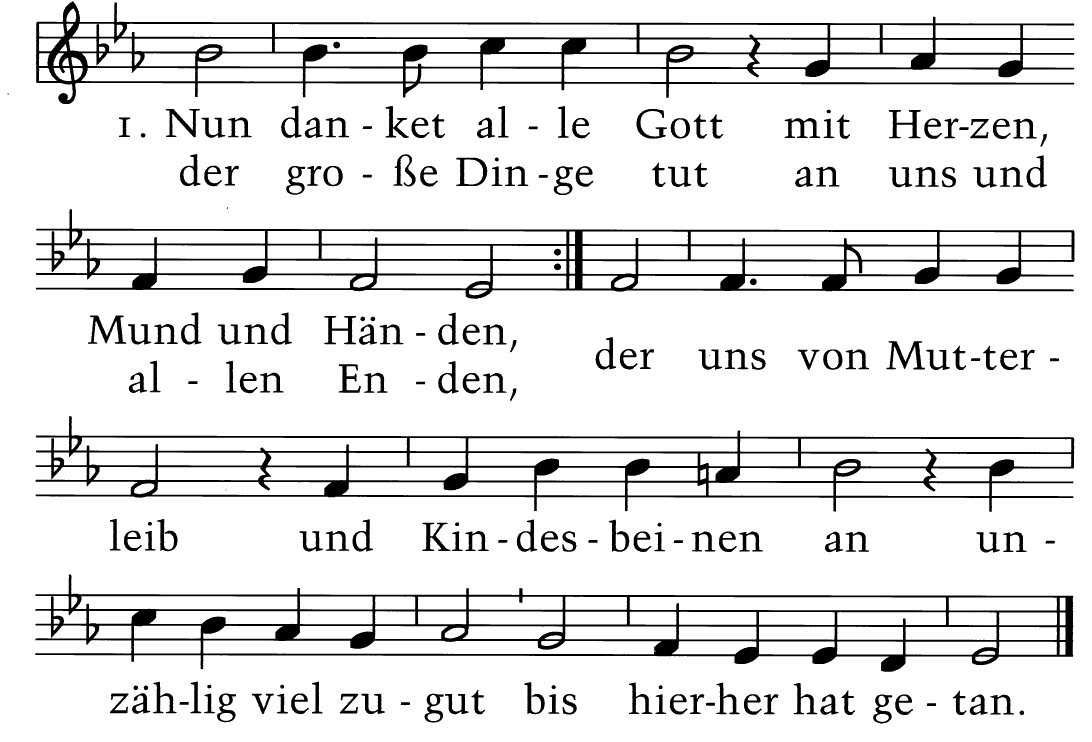 1. Nun dan - ket al - le Gott mit Her-zen,
der gro - ße Din - ge tut an uns und
Mund und Hän - den,
al - len En - den,
der uns von Mut-ter -
leib und Kin - des - bei - nen an un -
zäh-lig viel zu - gut bis hier-her hat ge - tan.